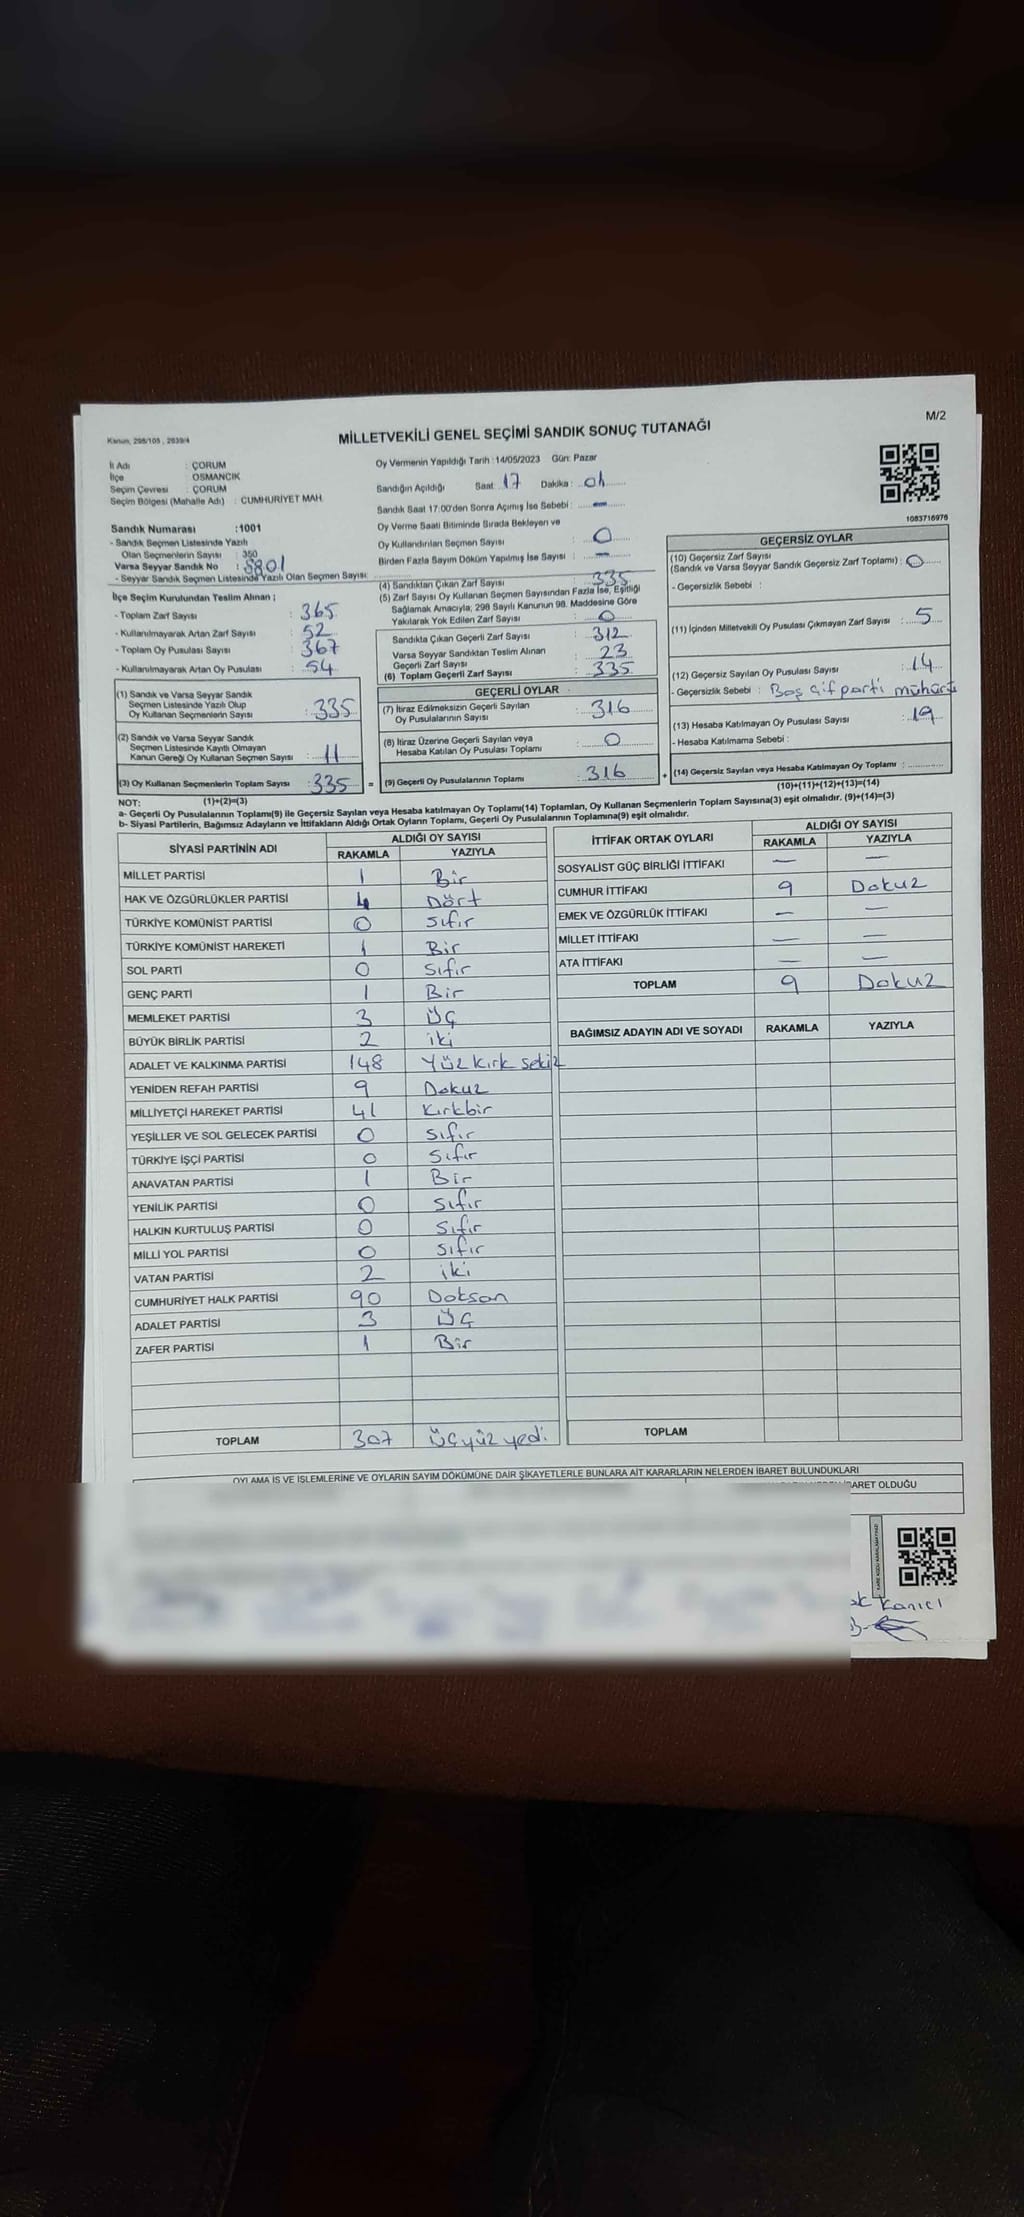 Kanun, 298/105 , 2839/4
M/2
MİLLETVEKİLİ GENEL SEÇİMİ SANDIK SONUÇ TUTANAĞI
İl Adı : ÇORUM
İlçe : OSMANCIK
Seçim Çevresi : ÇORUM
Seçim Bölgesi (Mahalle Adı) : CUMHURİYET MAH.
Oy Vermenin Yapıldığı Tarih : 14/05/2023 Gün: Pazar
Sandığın Açıldığı Saat : 17 Dakika :
Sandık Saat 17:00'den Sonra Açımış İse Sebebi : —
Oy Verme Saati Bitiminde Sırada Bekleyen ve
Oy Kullandırılan Seçmen Sayısı : 0
Birden Fazla Sayım Döküm Yapılmış İse Sayısı : —
1083716976
Sandık Numarası :1001
- Sandık Seçmen Listesinde Yazılı
Olan Seçmenlerin Sayısı : 350
Varsa Seyyar Sandık No : 8801
- Seyyar Sandık Seçmen Listesinde Yazılı Olan Seçmen Sayısı:
İlçe Seçim Kurulundan Teslim Alınan ;
- Toplam Zarf Sayısı : 365
- Kullanılmayarak Artan Zarf Sayısı : 52
- Toplam Oy Pusulası Sayısı : 367
- Kullanılmayarak Artan Oy Pusulası : 54
(1) Sandık ve Varsa Seyyar Sandık
Seçmen Listesinde Yazılı Olup
Oy Kullanan Seçmenlerin Sayısı : 335
(2) Sandık ve Varsa Seyyar Sandık
Seçmen Listesinde Kayıtlı Olmayan
Kanun Gereği Oy Kullanan Seçmen Sayısı : 11
(3) Oy Kullanan Seçmenlerin Toplam Sayısı : 335 =
(4) Sandıktan Çıkan Zarf Sayısı : 335
(5) Zarf Sayısı Oy Kullanan Seçmen Sayısından Fazla İse, Eşitliği
Sağlamak Amacıyla; 298 Sayılı Kanunun 98. Maddesine Göre
Yakılarak Yok Edilen Zarf Sayısı : 0
Sandıkta Çıkan Geçerli Zarf Sayısı : 312
Varsa Seyyar Sandıktan Teslim Alınan
Geçerli Zarf Sayısı : 23
(6) Toplam Geçerli Zarf Sayısı : 335
GEÇERLİ OYLAR
(7) İtiraz Edilmeksizin Geçerli Sayılan
Oy Pusulalarının Sayısı : 316
(8) İtiraz Üzerine Geçerli Sayılan veya
Hesaba Katılan Oy Pusulası Toplamı : 0
(9) Geçerli Oy Pusulalarının Toplamı : 316 +
GEÇERSİZ OYLAR
(10) Geçersiz Zarf Sayısı
(Sandık ve Varsa Seyyar Sandık Geçersiz Zarf Toplamı) : 0
- Geçersizlik Sebebi :
(11) İçinden Milletvekili Oy Pusulası Çıkmayan Zarf Sayısı : 5
(12) Geçersiz Sayılan Oy Pusulası Sayısı : 14
- Geçersizlik Sebebi : Boş çif parti mühürü
(13) Hesaba Katılmayan Oy Pusulası Sayısı : 19
- Hesaba Katılmama Sebebi :
(14) Geçersiz Sayılan veya Hesaba Katılmayan Oy Toplamı :
(10)+(11)+(12)+(13)=(14)
NOT: (1)+(2)=(3)
a- Geçerli Oy Pusulalarının Toplamı(9) ile Geçersiz Sayılan veya Hesaba katılmayan Oy Toplamı(14) Toplamları, Oy Kullanan Seçmenlerin Toplam Sayısına(3) eşit olmalıdır. (9)+(14)=(3)
b- Siyasi Partilerin, Bağımsız Adayların ve İttifakların Aldığı Ortak Oyların Toplamı, Geçerli Oy Pusulalarının Toplamına(9) eşit olmalıdır.
SİYASİ PARTİNİN ADI ALDIĞI OY SAYISI
RAKAMLA YAZIYLA
MİLLET PARTİSİ 1 Bir
HAK VE ÖZGÜRLÜKLER PARTİSİ 4 Dört
TÜRKİYE KOMÜNİST PARTİSİ 0 Sıfır
TÜRKİYE KOMÜNİST HAREKETİ 1 Bir
SOL PARTİ 0 Sıfır
GENÇ PARTİ 1 Bir
MEMLEKET PARTİSİ 3 Üç
BÜYÜK BİRLİK PARTİSİ 2 iki
ADALET VE KALKINMA PARTİSİ 148 Yüz kırk sekiz
YENİDEN REFAH PARTİSİ 9 Dokuz
MİLLİYETÇİ HAREKET PARTİSİ 41 Kırkbir
YEŞİLLER VE SOL GELECEK PARTİSİ 0 Sıfır
TÜRKİYE İŞÇİ PARTİSİ 0 Sıfır
ANAVATAN PARTİSİ 1 Bir
YENİLİK PARTİSİ 0 Sıfır
HALKIN KURTULUŞ PARTİSİ 0 Sıfır
MİLLİ YOL PARTİSİ 0 Sıfır
VATAN PARTİSİ 2 iki
CUMHURİYET HALK PARTİSİ 90 Doksan
ADALET PARTİSİ 3 Üç
ZAFER PARTİSİ 1 Bir
TOPLAM 307 Üçyüz yedi
İTTİFAK ORTAK OYLARI ALDIĞI OY SAYISI
RAKAMLA YAZIYLA
SOSYALİST GÜÇ BİRLİĞİ İTTİFAKI — —
CUMHUR İTTİFAKI 9 Dokuz
EMEK VE ÖZGÜRLÜK İTTİFAKI — —
MİLLET İTTİFAKI — —
ATA İTTİFAKI — —
TOPLAM 9 Dokuz
BAĞIMSIZ ADAYIN ADI VE SOYADI RAKAMLA YAZIYLA
TOPLAM
OYLAMA İŞ VE İŞLEMLERİNE VE OYLARIN SAYIM DÖKÜMÜNE DAİR ŞİKAYETLERLE BUNLARA AİT KARARLARIN NELERDEN İBARET BULUNDUKLARI
BARET OLDUĞU